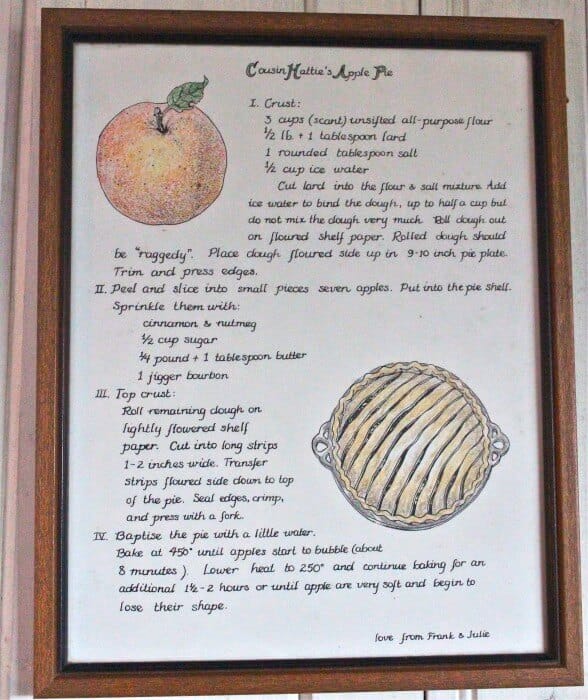 Cousin Hattie's Apple Pie
I. Crust:
3 cups (scant) unsifted all-purpose flour
½ lb. + 1 tablespoon lard
1 rounded tablespoon salt
½ cup ice water
Cut lard into the flour & salt mixture. Add
ice water to bind the dough, up to half a cup but
do not mix the dough very much. Roll dough out
on floured shelf paper. Rolled dough should
be "raggedy". Place dough floured side up in 9-10 inch pie plate.
Trim and press edges.
II. Peel and slice into small pieces seven apples. Put into the pie shell.
Sprinkle them with:
cinnamon & nutmeg
½ cup sugar
¼ pound + 1 tablespoon butter
1 jigger bourbon
III. Top crust:
Roll remaining dough on
lightly flowered shelf
paper. Cut into long strips
1-2 inches wide. Transfer
strips floured side down to top
of the pie. Seal edges, crimp,
and press with a fork.
IV. Baptise the pie with a little water.
Bake at 450° until apples start to bubble (about
8 minutes). Lower heat to 250° and continue baking for an
additional 1½-2 hours or until apple are very soft and begin to
lose their shape.
love from Frank & Julie